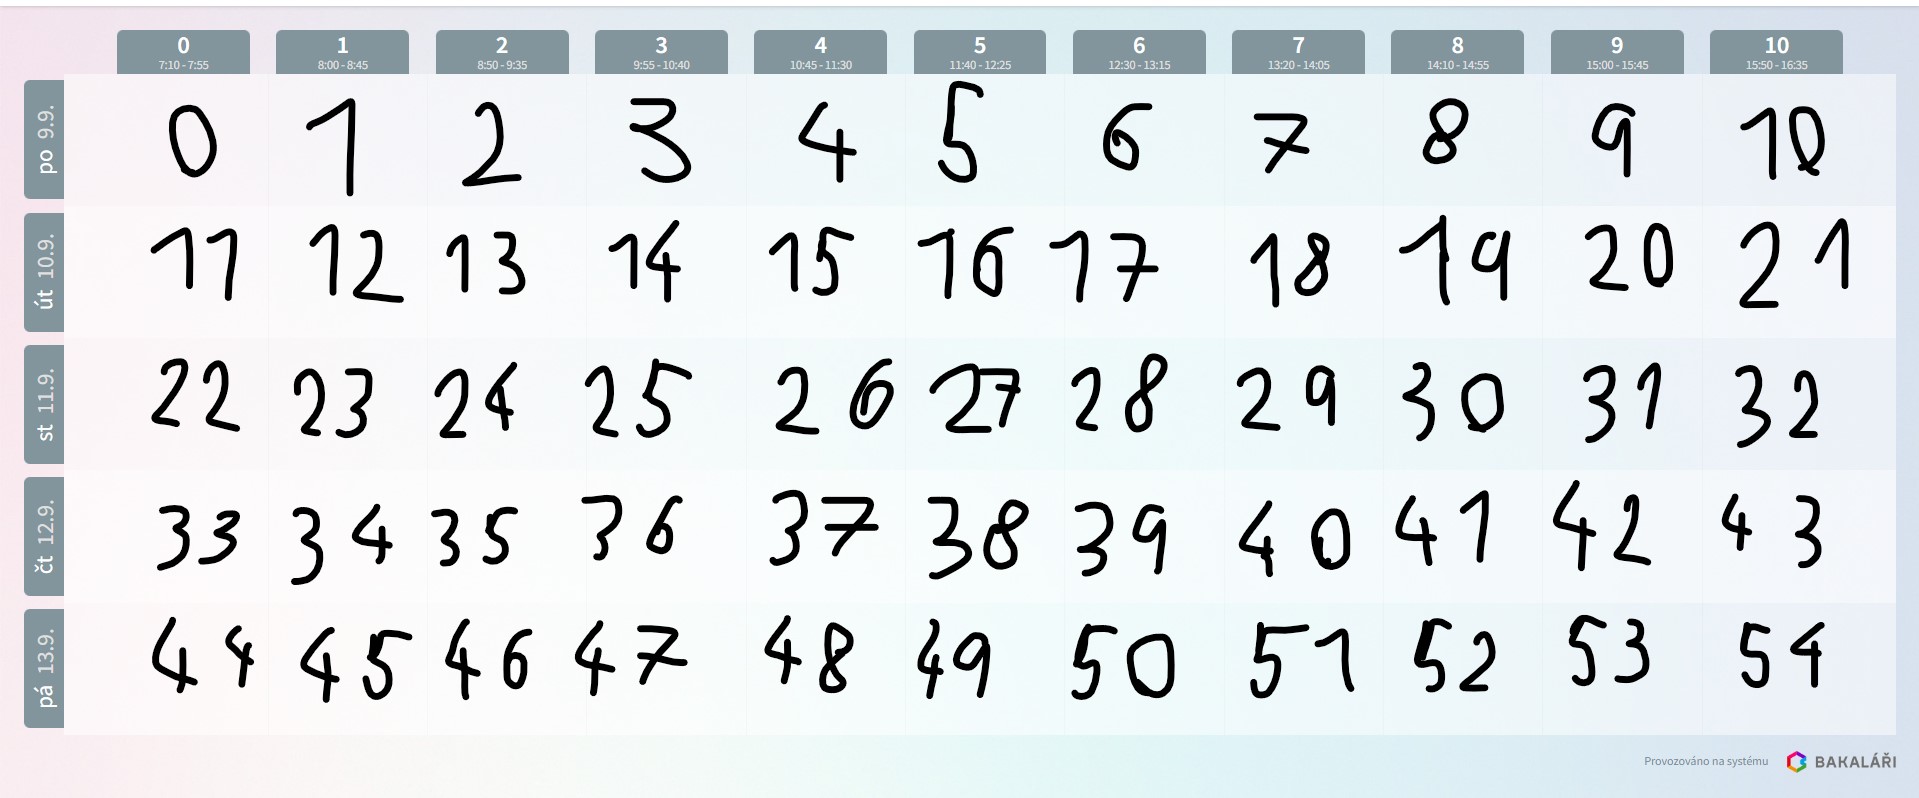 0 1 2 3 4 5 6 7 8 9 10
7:10 - 7:55 8:00 - 8:45 8:50 - 9:35 9:55 - 10:40 10:45 - 11:30 11:40 - 12:25 12:30 - 13:15 13:20 - 14:05 14:10 - 14:55 15:00 - 15:45 15:50 - 16:35
po 9.9. 0 1 2 3 4 5 6 7 8 9 10
út 10.9. 11 12 13 14 15 16 17 18 19 20 21
st 11.9. 22 23 24 25 26 27 28 29 30 31 32
čt 12.9. 33 34 35 36 37 38 39 40 41 42 43
pá 13.9. 44 45 46 47 48 49 50 51 52 53 54
Provozováno na systému BAKALÁŘI